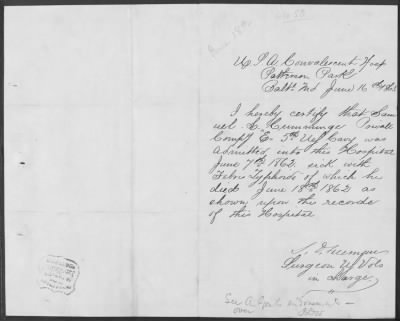 U.S.A. Convalescent Hosp
Patterson Park
Balto Md June 16th 1863
I hereby certify that Sam-
uel C. Cummings Private
Compy "E" 5th US Cavy was
admitted into this Hospital
June 7th 1862 sick with
Febris Typhoides of which he
died June 18th 1862 as
shown upon the records
of this Hospital
Surgeon US Vols
in charge
See A. Gen'ls endorsement
over